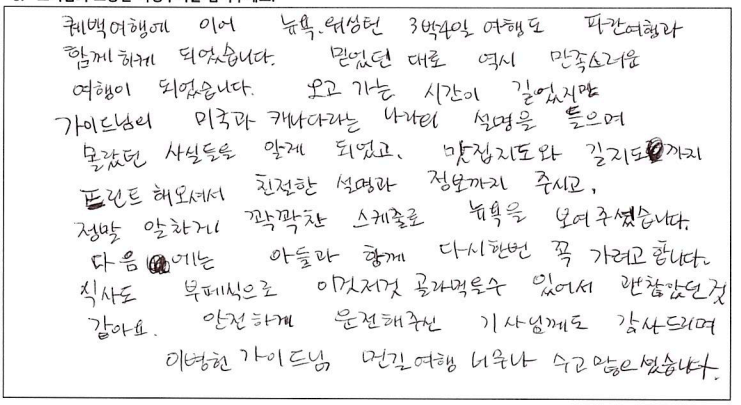 퀘백여행에 이어 뉴욕.워싱턴 3박4일 여행도 파란여행과
함께하게 되었습니다. 믿었던 대로 역시 만족스러운
여행이 되었습니다. 오고 가는 시간이 길었지만
가이드님의 미국과 캐나다라는 나라의 설명을 들으며
몰랐던 사실들을 알게 되었고, 맛집지도와 길지도까지
프린트 해오셔서 친절한 설명과 정보까지 주시고,
정말 알차게 꽉꽉찬 스케줄로 뉴욕을 보여주셨습니다.
다음에는 아들과 함께 다시한번 꼭 가려고합니다.
식사도 부페식으로 이것저것 골라먹을수 있어서 괜찮았던것
같아요. 안전하게 운전해주신 기사님께도 감사드리며
이병헌 가이드님 먼길여행 너무나 수고많으셨습니다.